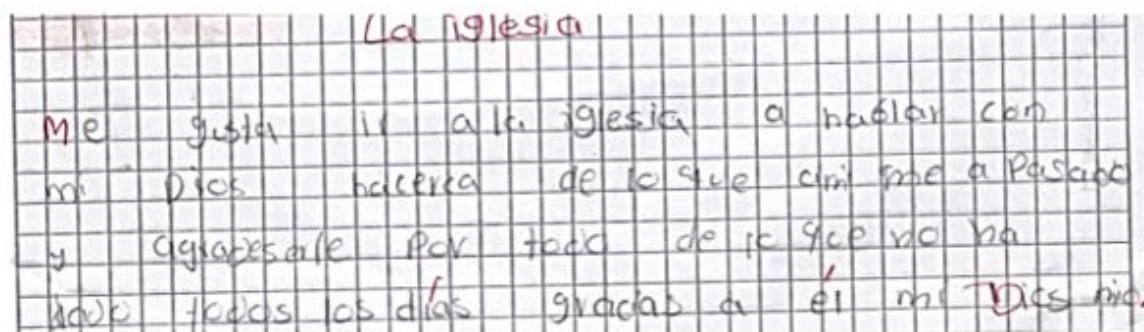 La iglesia
Me gusta ir a la iglesia a hablar con
mi Dios hacerca de lo que ami me a Pasado
y agradeserle Por todo de lo que no ha
todos los días gracias a él mi Dios mio.